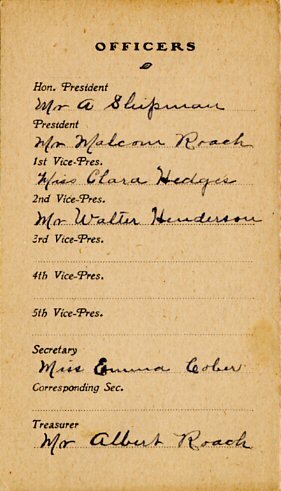 OFFICERS
Hon. President
Mr A Shipman
President
Mr Malcom Roach
1st Vice-Pres.
Miss Clara Hedges
2nd Vice-Pres.
Mr Walter Henderson
3rd Vice-Pres.
4th Vice-Pres.
5th Vice-Pres.
Secretary
Miss Emma Cober
Corresponding Sec.
Treasurer
Mr Albert Roach